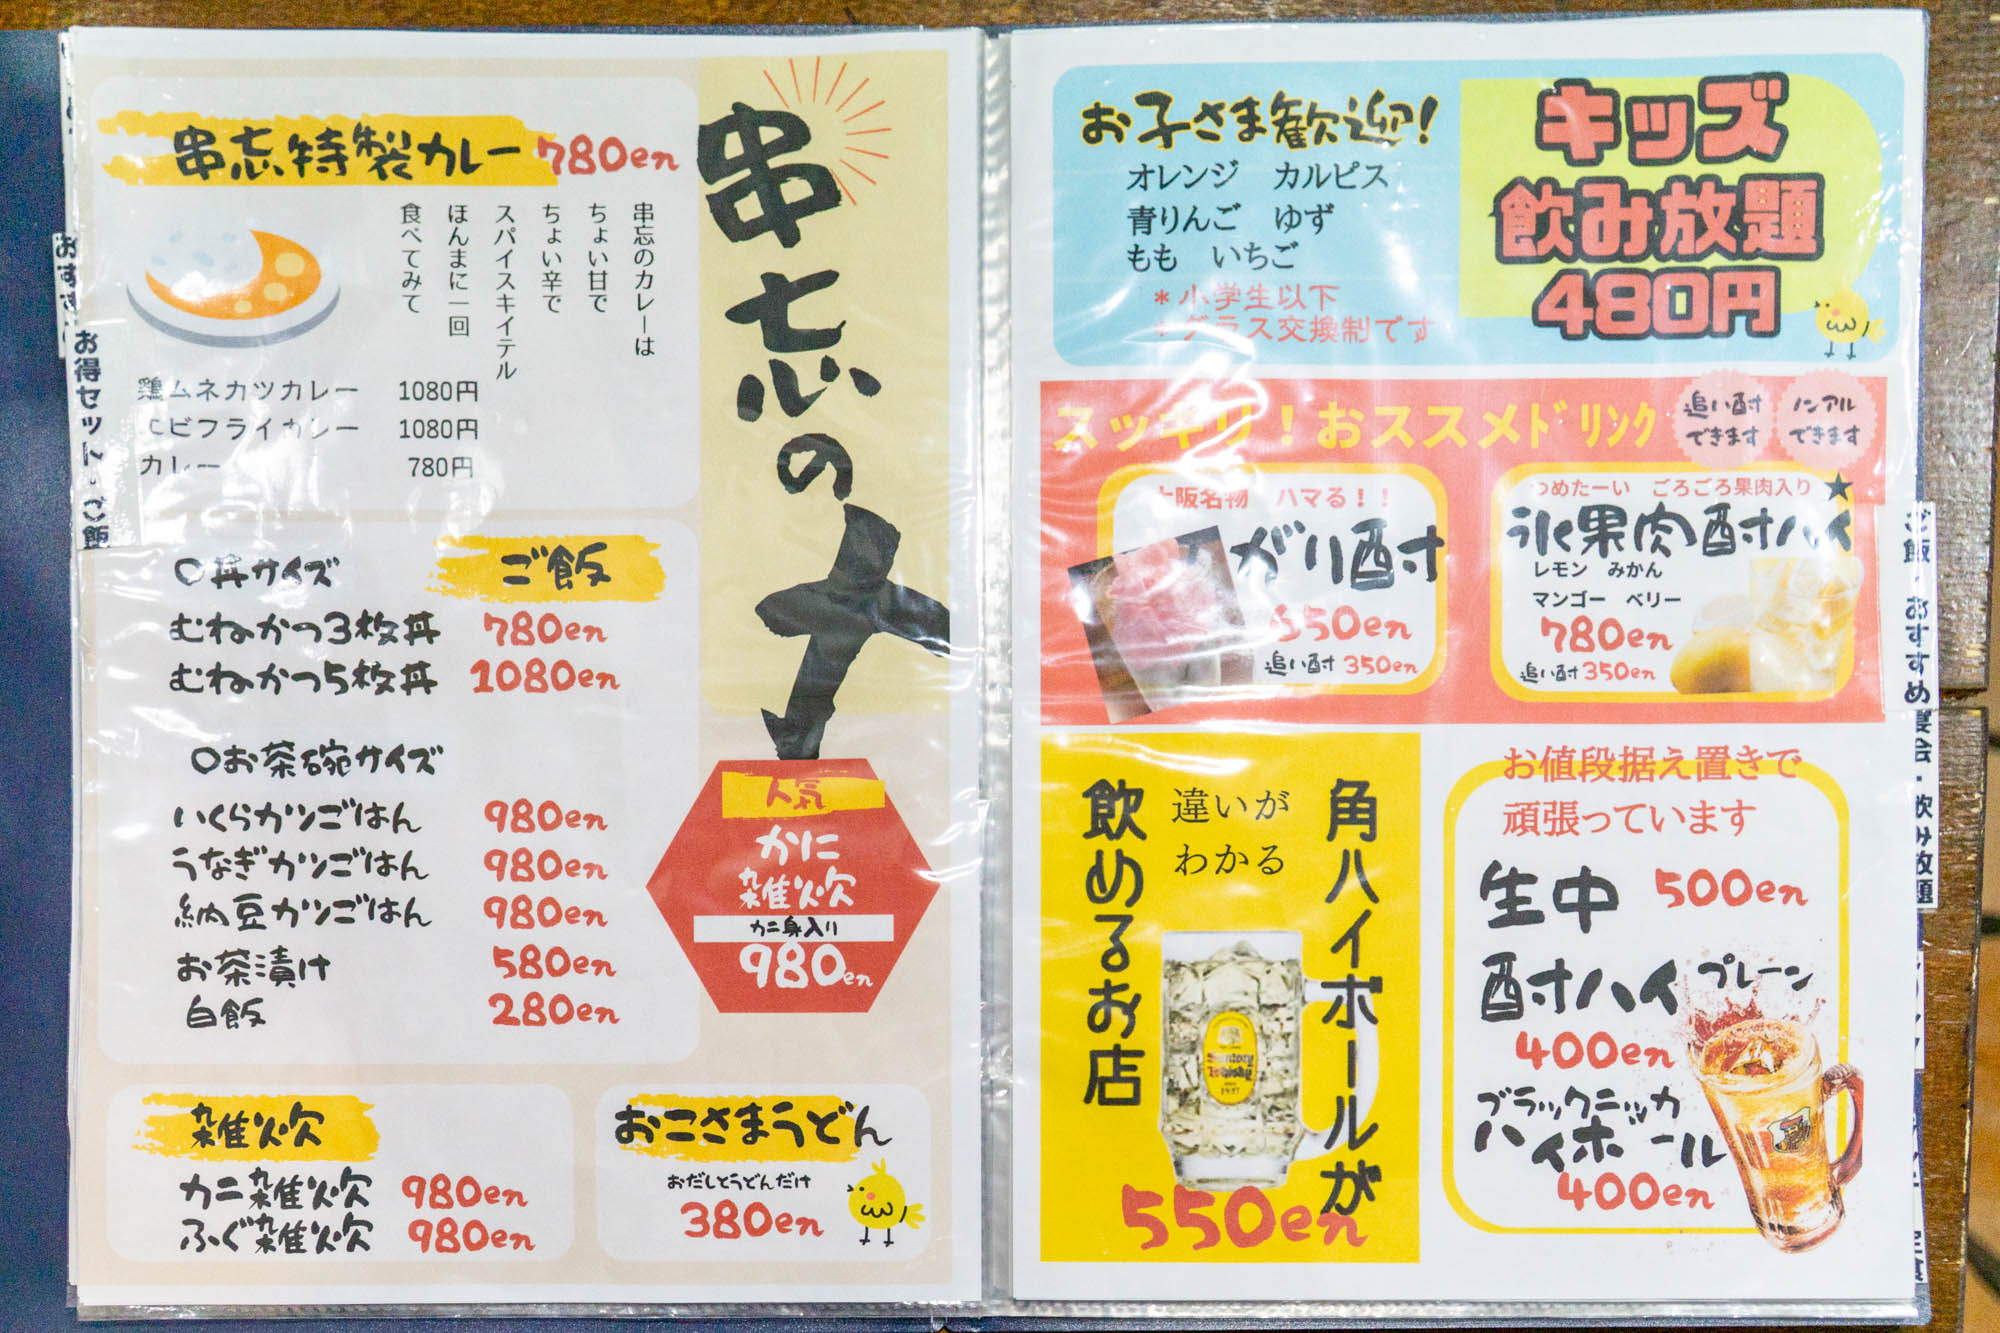 串忘の
串忘特製カレー 780en
串忘のカレーは
ちょい甘で
ちょい辛で
スパイスキイテル
ほんまに一回
食べてみて
鶏ムネカツカレー 1080円
エビフライカレー 1080円
カレー 780円
ご飯
〇丼サイズ
むねかつ3枚丼 780en
むねかつ5枚丼 1080en
〇お茶碗サイズ
いくらカツごはん 980en
うなぎカツごはん 980en
納豆カツごはん 980en
お茶漬け 580en
白飯 280en
人気
かに
雑炊
カニ身入り
980en
雑炊
カニ雑炊 980en
ふぐ雑炊 980en
おこさまうどん
おだしとうどんだけ
380en
お得セット・ご飯
お子さま歓迎!
オレンジ カルピス
青りんご ゆず
もも いちご
*小学生以下
*グラス交換制です
キッズ
飲み放題
480円
スッキリ!おススメドリンク
追い酎
できます
ノンアル
できます
大阪名物 ハマる!!
がり酎
650en
追い酎 350en
つめたーい ごろごろ果肉入り ★
氷果肉酎ハイ
レモン みかん
マンゴー ベリー
780en
追い酎 350en
角ハイボールが
違いが
わかる
飲めるお店
Suntory
Whisky
1937
550en
お値段据え置きで
頑張っています
生中 500en
酎ハイ プレーン
400en
ブラックニッカ
ハイボール
400en
ご飯・おすすめ
宴会・飲み放題